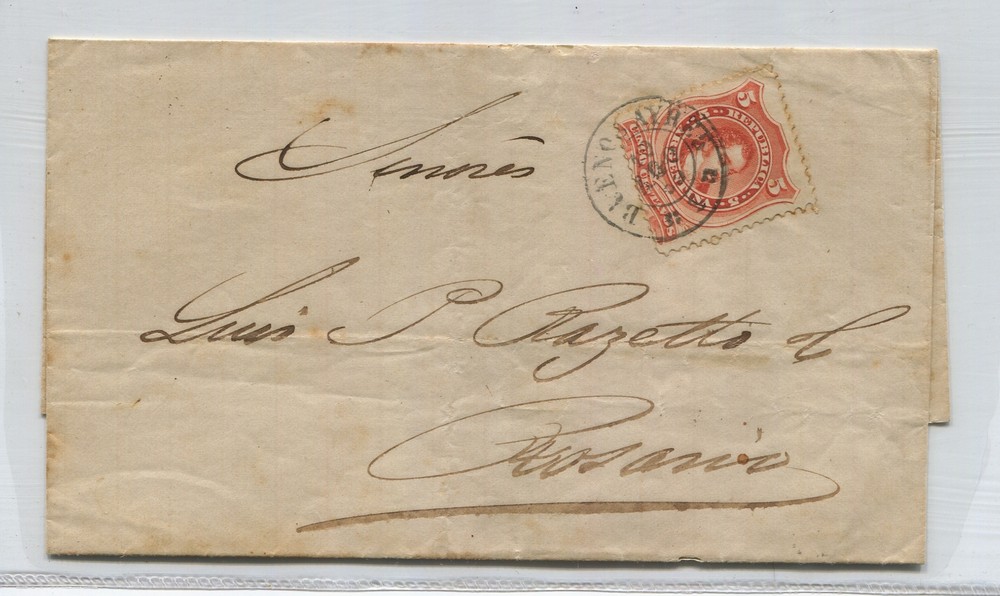 Señores
Luis P Razetto &
Rosario
BUENOS AYRES
5 5
REPUBLICA ARGENTINA
CINCO CENTAVOS